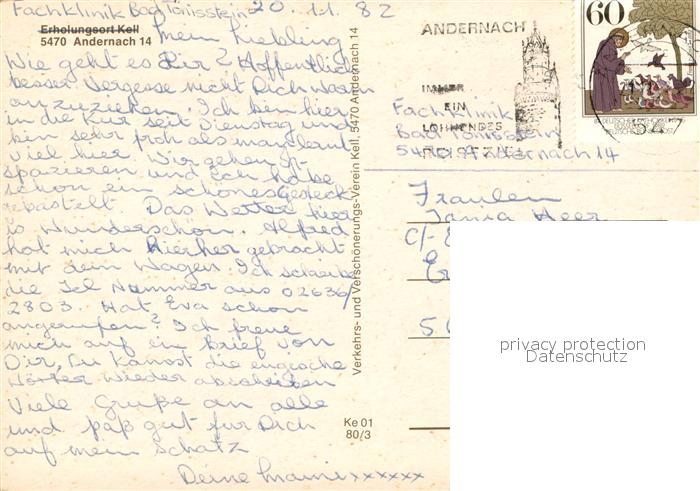 Fachklinik Bad Tönisstein 20.11.82
Erholungsort Kell
5470 Andernach 14
Mein Liebling
Wie geht es Dir? Hoffentlich
besser Vergesse nicht Dich warm
anzuziehen. Ich bin hier
in die Kur seit Dienstag und
bin sehr froh als man lernt
viel hier Wir gehen
spazieren und ich habe
schon ein schönes Gesteck
gebastelt Das Wetter hier
is Wunderschön. Alfred
hat mich hierher gebracht
mit dem Wagen Ich schreibe
die Tel Nummer aus 02636/
2803. Hat Eva schon
angerufen? Ich freue
mich auf ein Brief von
Dir, Du kannst die englische
Wörter wieder abschreiben
Viele Gruße an alle
und paß gut für Dich
auf mein Schatz
Deine Mami xxxxxx
Verkehrs- und Verschönerungs-Verein Kell, 5470 Andernach 14
Ke 01
80/3
ANDERNACH
IMMER
EIN
LOHNENDES
REISEZIEL
60
DEUTSCHE BUNDESPOST
Fachklinik
Bad Tönisstein
5470 Andernach 14
Fraulein
Tania Heer
C/-
5
privacy protection
Datenschutz